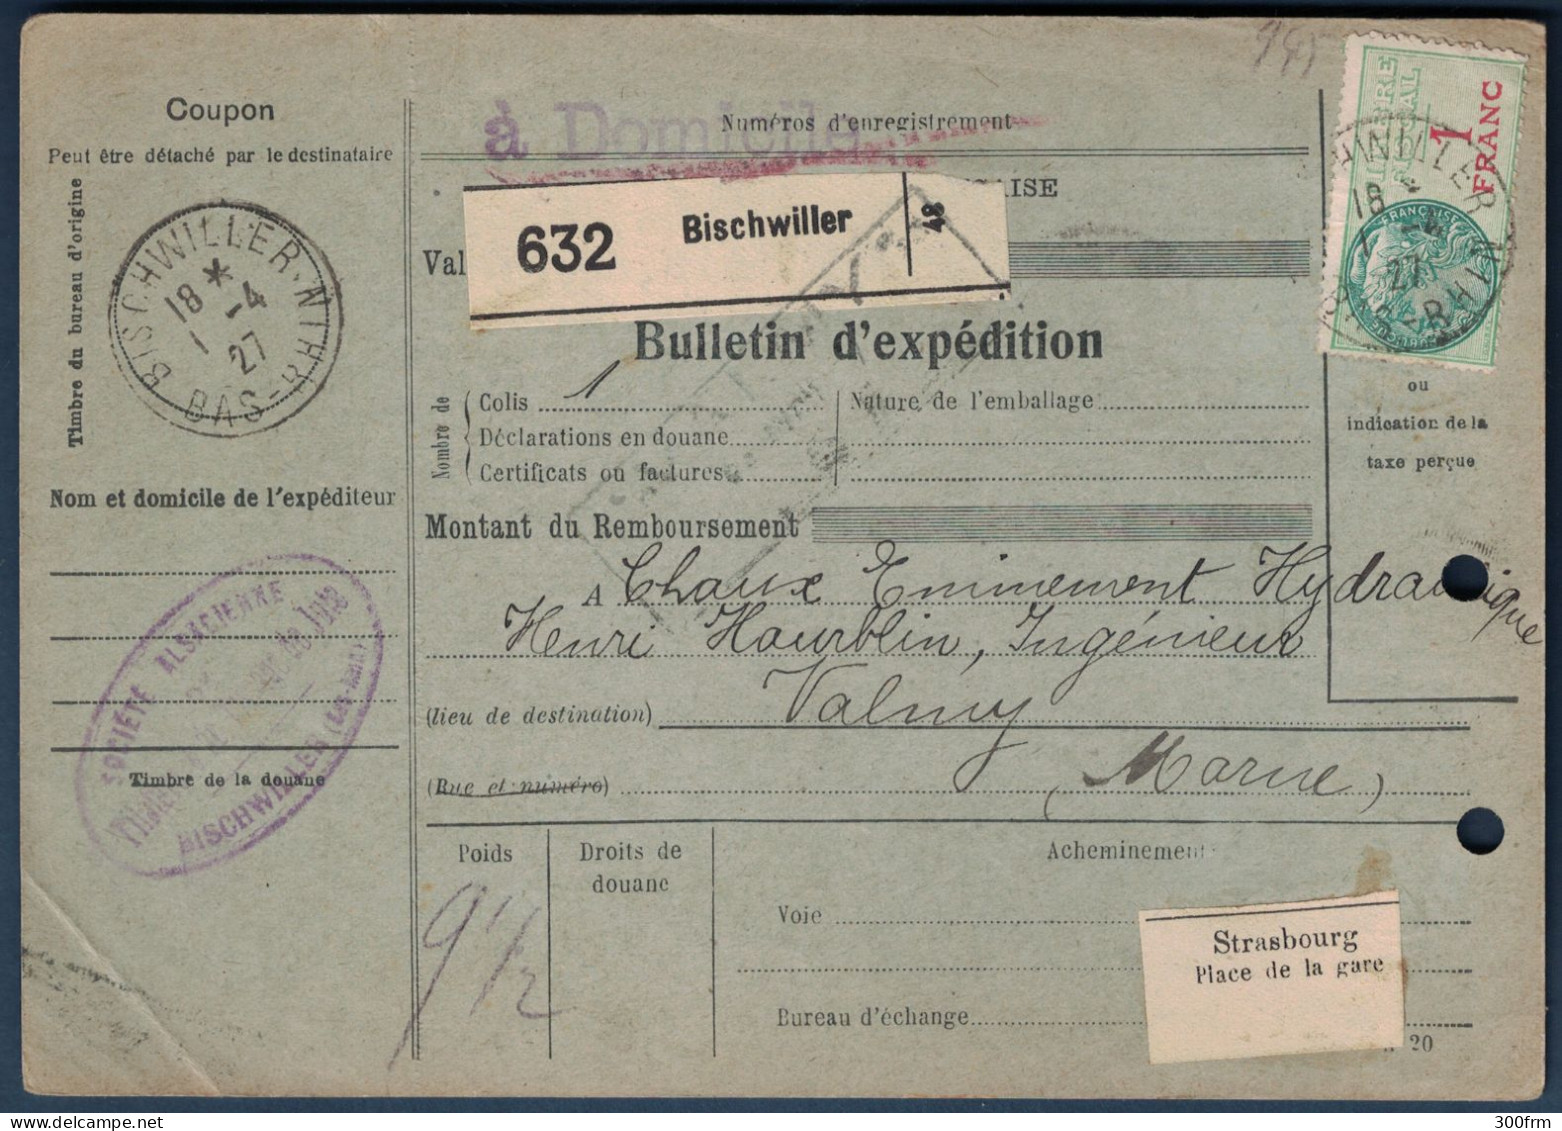 Coupon
Peut être détaché par le destinataire
Timbre du bureau d'origine
BISCHWILLER-NTHIN
18 *
1 -4
27
BAS-RHIN
Nom et domicile de l'expéditeur
SOCIÉTÉ ALSACIENNE
de Jute
BISCHWILLER (Bas-Rhin)
Timbre de la douane
à Domicile
Numéros d'enregistrement
632 Bischwiller 48
AISE
Val
Bulletin d'expédition
Nombre de
Colis 1
Déclarations en douane
Certificats ou factures
Nature de l'emballage
Montant du Remboursement
A Chaux Eminement Hydraulique
Henri Hourblin, Ingénieur
(lieu de destination) Valmy
(Rue et numéro) (Marne)
TIMBRE
FISCAL
1
FRANC
FRANÇAISE
HWILLER
18
27
-RHIN
ou
indication de la
taxe perçue
Poids
9 1/2
Droits de
douane
Acheminement
Voie
Strasbourg
Place de la gare
Bureau d'échange
20
300frm